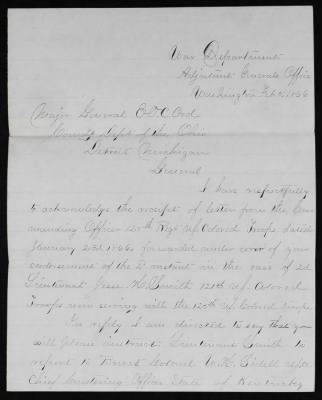 War Department
Adjutant Generals Office
Washington Feb 1866
Major General E.O.C. Ord
Comdg Dept of the Ohio
Detroit Michigan
General
I have respectfully
to acknowledge the receipt of letter from the Com
manding Officer 120th Regt U.S. Colored Troops dated
January 23d 1866 forwarded under cover of your
endorsement of the 2d instant in the case of 2d
Lieutenant Jesse H. Smith 121st U.S. Colored
Troops now serving with the 120th U.S. Colored Troops
In reply I am directed to say that you
will please instruct Lieutenant Smith to
report to Brevet Colonel W. H. Sidell
Chief Mustering Officer State of Kentucky